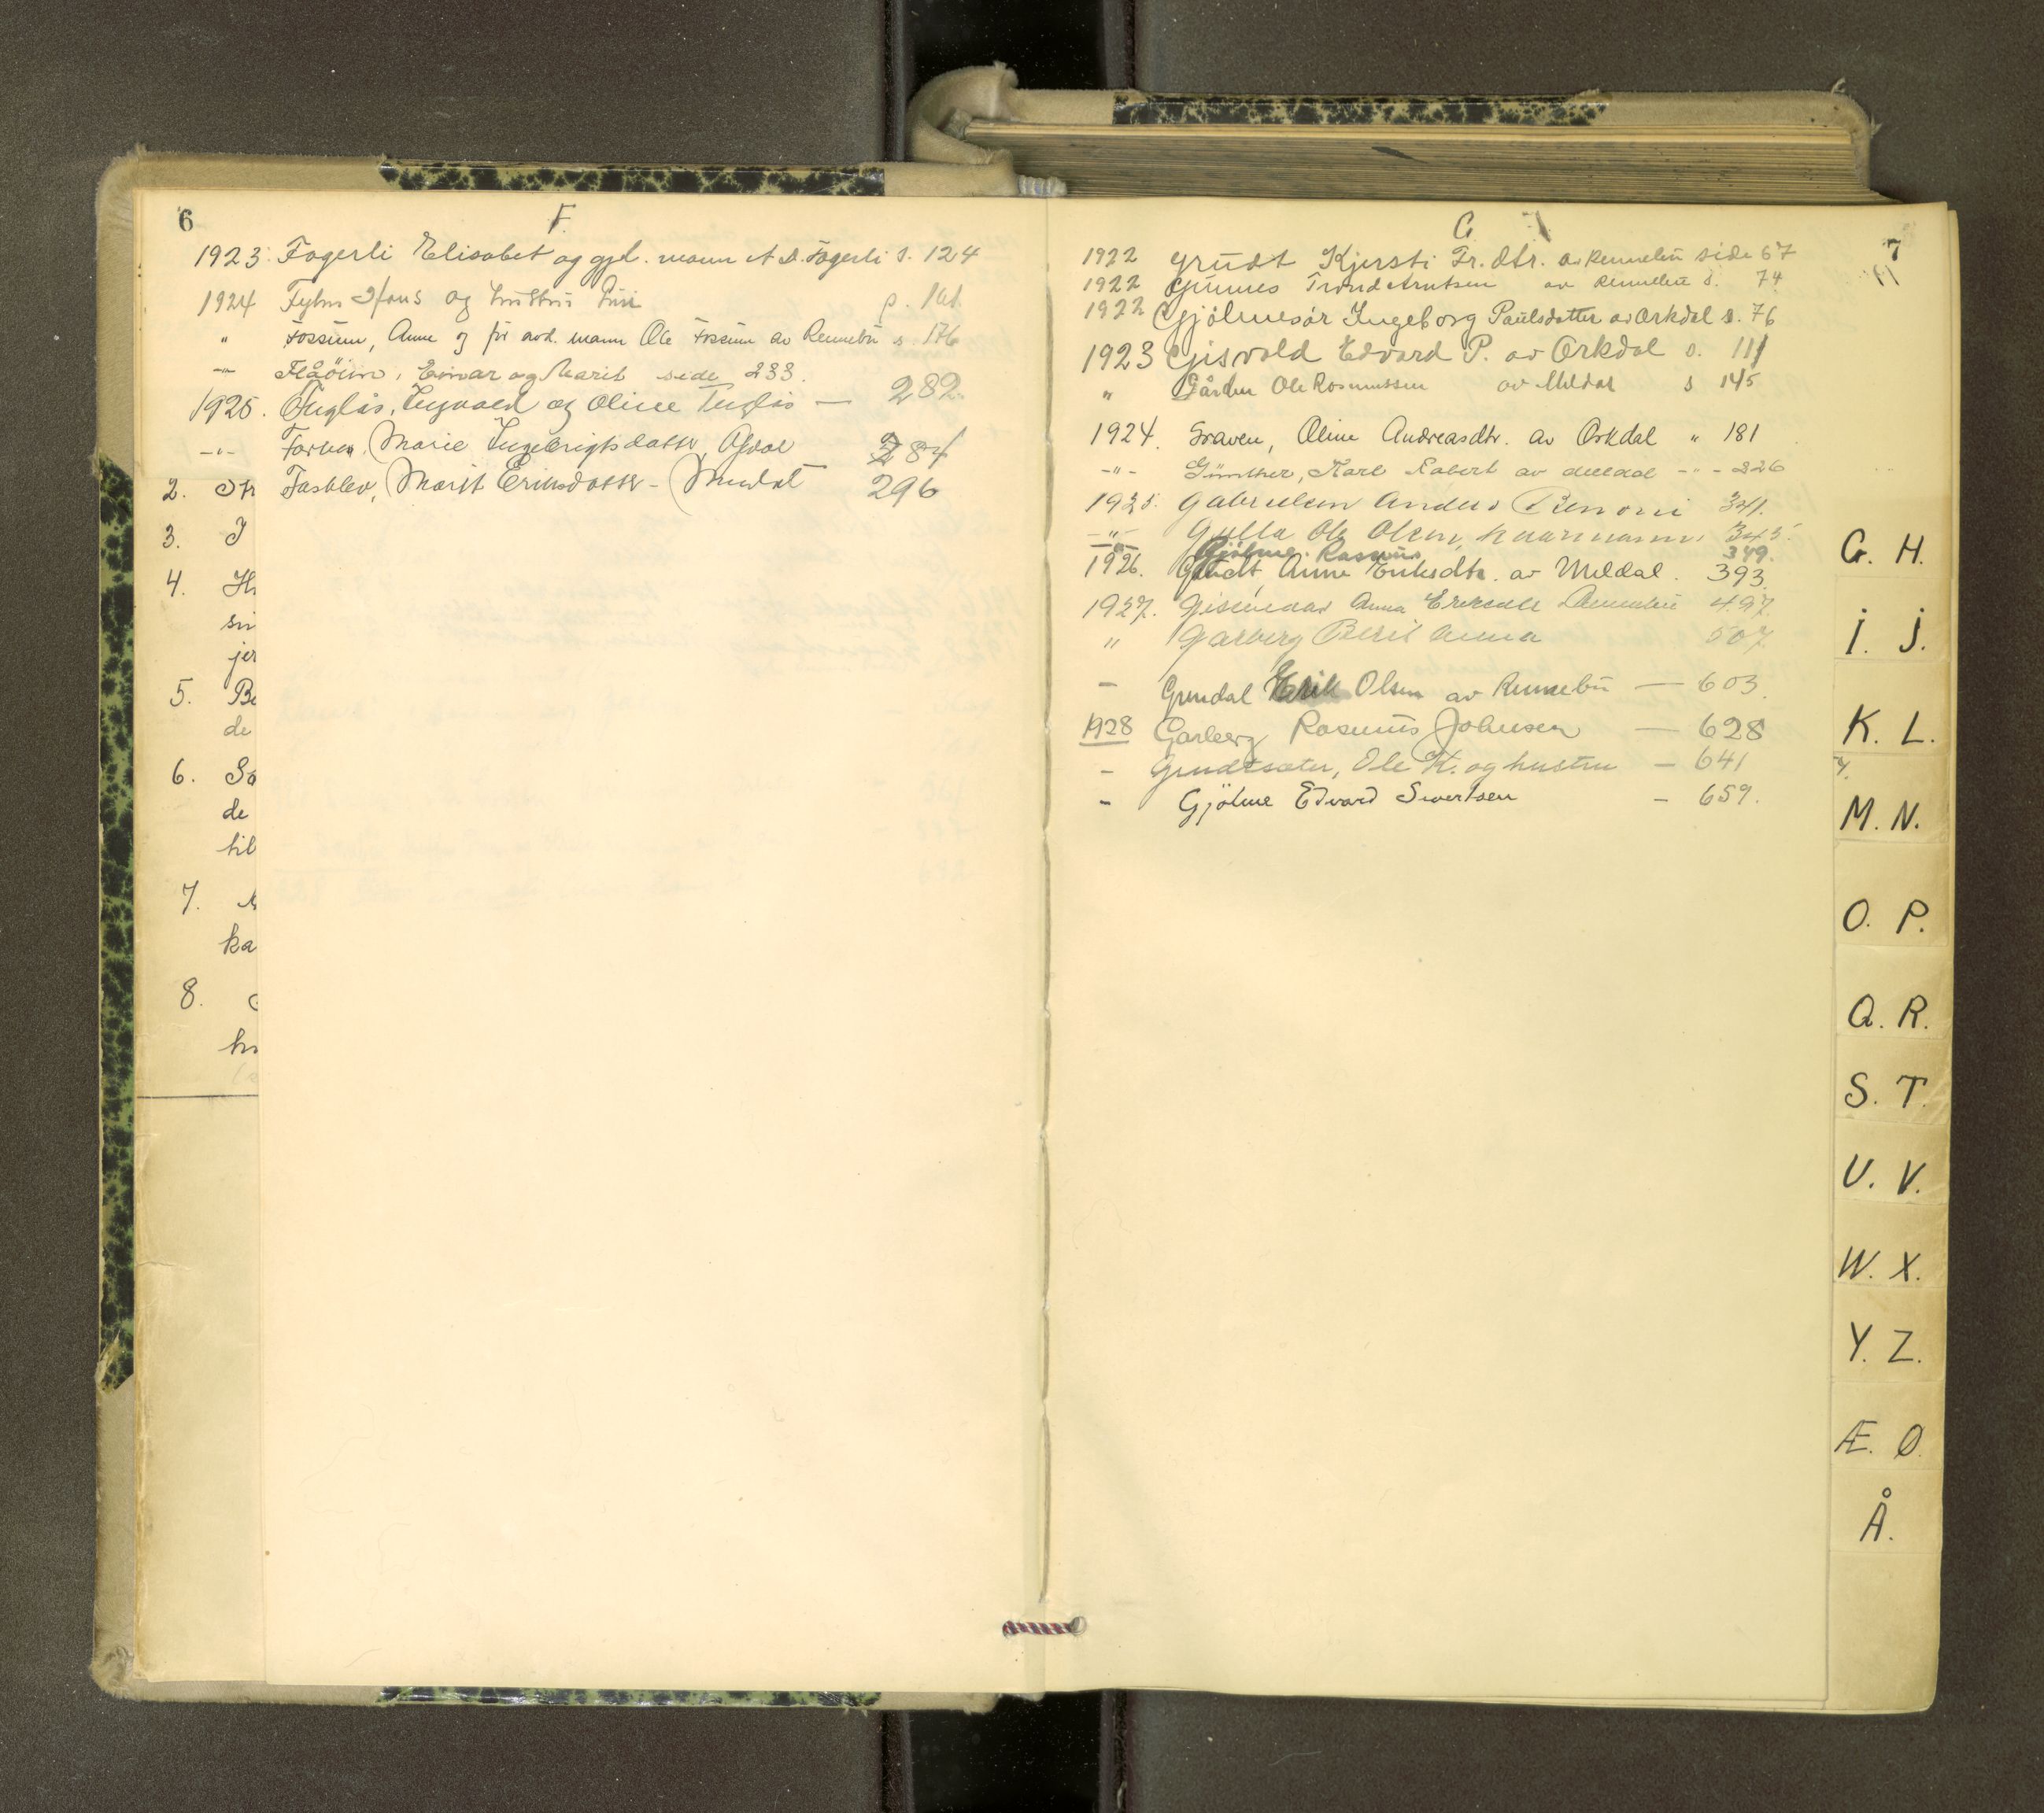 6
F.
1923. Fagerli Elisabet og gjel. mann A D. Fagerli s. 124
1924 Fyhn Hans og hustru
" Fossum, Anne og for avd. mann Ole Fossum av Rennebu s. 176
-"- Flåøien, Einar og Marit side 233.
1925. Fuglås, Ingvald og Oline Fuglås — 282.
-"- Marie Ingebrigtsdatter, 284
2. Marit Eriksdatter - 296
3.
4.
sn
jer
5. Be
de
6. Sø
de
til
7.
ka
8.
G
7
1922 Grudt Kjersti Tr. dtr. av Rennebu side 67
1922 Gunnes Trond Arntsen av Rennebu s. 74
1922 Gjølmesør Ingeborg Paulsdatter av Orkdal s. 76
1923 Gjisvold Edvard P. av Orkdal s. 111
" Gården Ole Rasmussen av Meldal s 145
1924. Graven, Oline Andreasdtr. av Orkdal " 181
-"- Günther, Karl Robert av Meldal -"- 226
1925. Gabrielsen Anders Benoni 341.
-"- Gylla Ole Olsen, 345.
-"- Gjølme. Rasmus 349.
1926. Grudt, Anne Eriksdtr. av Meldal. 393.
1927. Anna Rennebu 497
" Garberg Berit Anna 507
- Grindal Erik Olsen av Rennebu — 603.
1928 Garberg Rasmus Johnsen — 628
- Grudtsæter, Ole K. og hustru — 641
- Gjølme Edvard Sivertsen - 659.
G. H.
I. J.
K. L.
M. N.
O. P.
Q. R.
S. T.
U. V.
W. X.
Y. Z.
Æ. Ø.
Å.